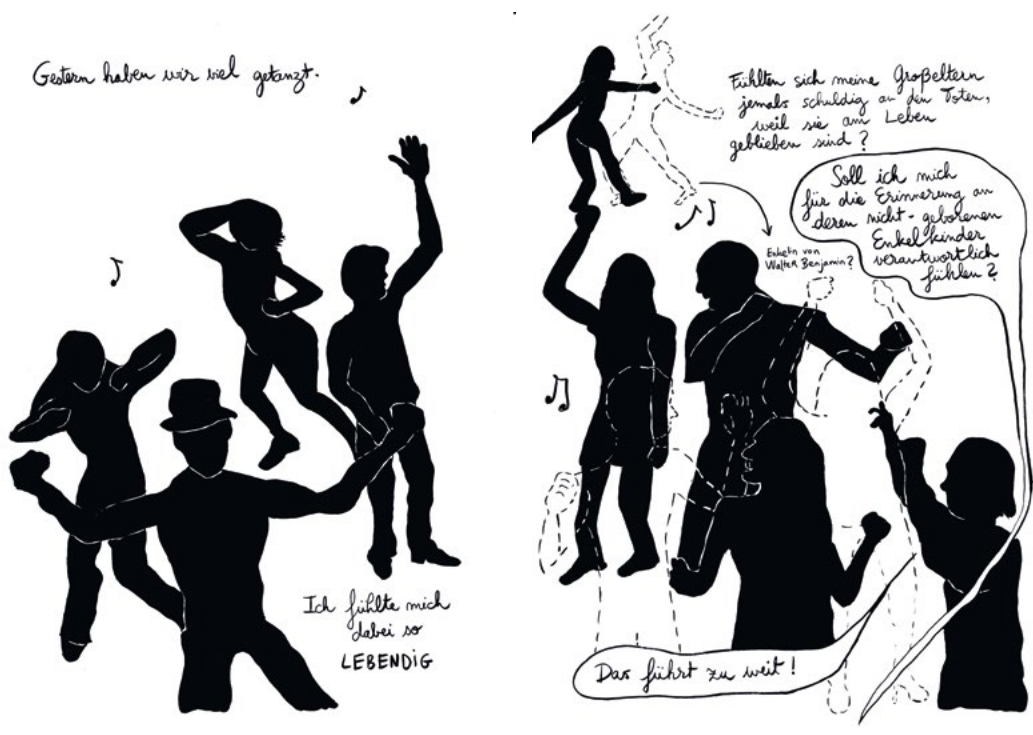 Gestern haben wir viel getanzt.
Ich fühlte mich
dabei so
LEBENDIG
Fühlten sich meine Großeltern
jemals schuldig an den Toten,
weil sie am Leben
geblieben sind?
Soll ich mich
für die Erinnerung an
deren nicht-geborenen
Enkelkinder
verantwortlich
fühlen?
Enkelin von
Walter Benjamin?
Das führt zu weit!